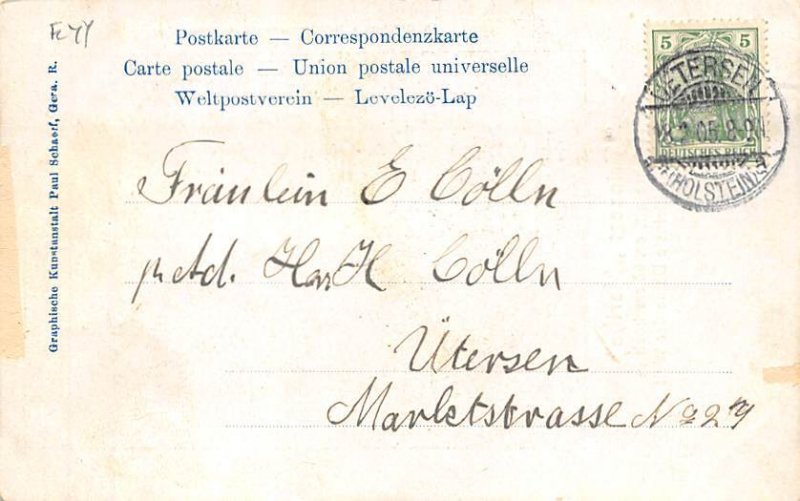 Postkarte — Correspondenzkarte
Carte postale — Union postale universelle
Weltpostverein — Levelezö-Lap
Graphische Kunstanstalt Paul Schaerf, Gera, R.
5 5
DEUTSCHES REICH
UETERSEN
05. 8-9
(HOLSTEIN)
Fräulein E Cölln
H Cölln
Ütersen
Marktstrasse No 29